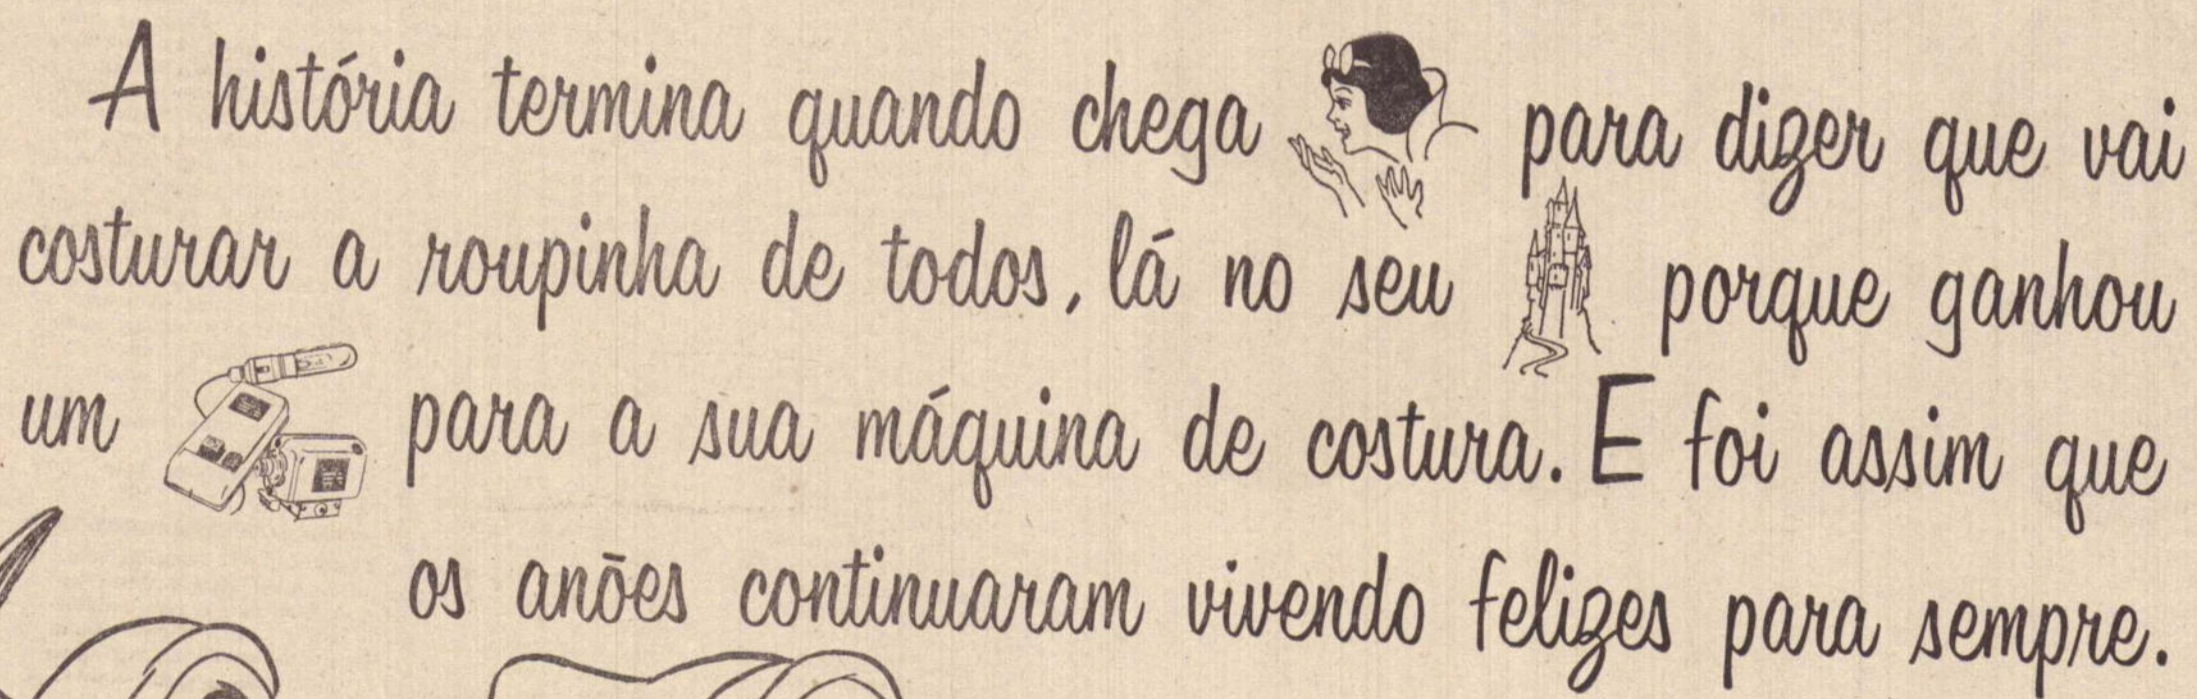 A história termina quando chega para dizer que vai
costurar a roupinha de todos, lá no seu porque ganhou
um para a sua máquina de costura. E foi assim que
os anões continuaram vivendo felizes para sempre.